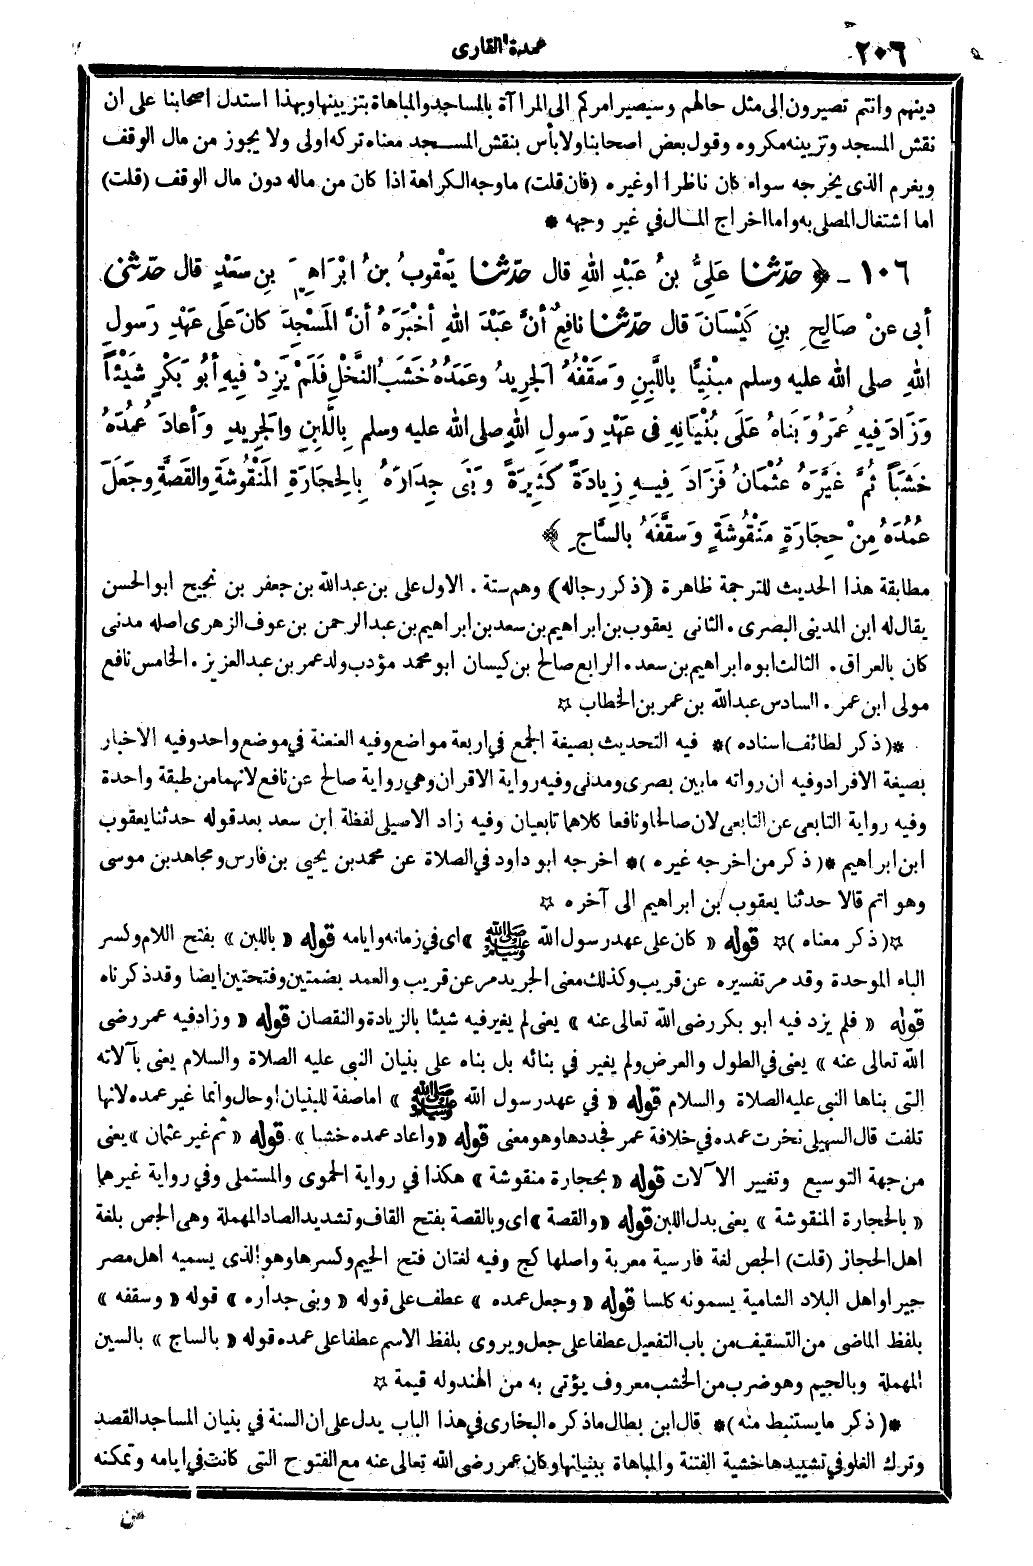 ٢٠٦ عمدة القارى
دينهم وانتم تصيرون الى مثل حالهم وسيصير امركم الى المراآة بالمساجد والمباهاة بتزيينها وبهذا استدل اصحابنا على ان
نقش المسجد وتزيينه مكروه وقول بعض اصحابنا ولا بأس بنقش المسجد معناه تركه اولى ولا يجوز من مال الوقف
ويغرم الذى يخرجه سواء كان ناظرا او غيره (فان قلت) ما وجه الكراهة اذا كان من ماله دون مال الوقف (قلت)
اما اشتغال المصلى به واما اخراج المال في غير وجهه *
١٠٦ - ﴿ حدّثنا عَلِيُّ بنُ عَبْدِ اللهِ قال حدّثنا يَعْقوبُ بنُ ابْرَاهِيمَ بنِ سَعْدٍ قال حدّثنى
أبى عنْ صَالِحِ بنِ كَيْسَانَ قال حدّثنا نافِعٌ أنَّ عَبْدَ اللهِ أخْبَرَهُ أنَّ المَسْجِدَ كانَ عَلَى عَهْدِ رَسولِ
اللهِ صلى الله عليه وسلم مبْنِيًّا باللَّبِنِ وَسَقْفُهُ الجَرِيدُ وعَمَدُهُ خَشَبُ النَّخْلِ فَلَمْ يَزِدْ فِيهِ أبُو بَكْرٍ شَيْئاً
وَزَادَ فِيهِ عُمَرُ وَبَناهُ عَلَى بُنْيَانِهِ فى عَهْدِ رَسولِ اللهِ صلى الله عليه وسلم بِاللَّبِنِ والجَرِيدِ وَأعادَ عُمُدَهُ
خَشَباً ثُمَّ غَيَّرَهُ عثْمَانُ فَزَادَ فِيهِ زِيادَةً كَثِيرَةً وَبَنَى جِدَارَهُ بِالحِجَارَةِ المَنْقُوشَةِ والقَصَّةِ وجَعَلَ
عُمُدَهُ مِنْ حِجَارَةٍ مَنْقُوشَةٍ وَسَقَّفَهُ بالسَّاجِ ﴾
مطابقة هذا الحديث للترجمة ظاهرة (ذكر رجاله) وهم ستة. الاول على بن عبدالله بن جعفر بن نجيح ابو الحسن
يقال له ابن المدينى البصرى. الثانى يعقوب بن ابراهيم بن سعد بن ابراهيم بن عبد الرحمن بن عوف الزهرى اصله مدنى
كان بالعراق. الثالث ابوه ابراهيم بن سعد. الرابع صالح بن كيسان ابو محمد مؤدب ولد عمر بن عبد العزيز. الخامس نافع
مولى ابن عمر. السادس عبدالله بن عمر بن الخطاب ☆
*(ذكر لطائف اسناده)* فيه التحديث بصيغة الجمع في اربعة مواضع وفيه العنعنة في موضع واحد وفيه الاخبار
بصيغة الافراد وفيه ان رواته ما بين بصرى ومدنى وفيه رواية الاقران وهى رواية صالح عن نافع لانهما من طبقة واحدة
وفيه رواية التابعى عن التابعى لان صالحا ونافعا كلاهما تابعيان وفيه زاد الاصيلى لفظة ابن سعد بعد قوله حدثنا يعقوب
ابن ابراهيم *(ذكر من اخرجه غيره)* اخرجه ابو داود في الصلاة عن محمد بن يحيى بن فارس ومجاهد بن موسى
وهو اتم قالا حدثنا يعقوب بن ابراهيم الى آخره ☆
☆(ذكر معناه)☆ قوله «كان على عهد رسول الله ﷺ» اى في زمانه وايامه قوله «باللبن» بفتح اللام وكسر
الباء الموحدة وقد مر تفسيره عن قريب وكذلك معنى الجريد مر عن قريب والعمد بضمتين وفتحتين ايضا وقد ذكرناه
قوله «فلم يزد فيه ابو بكر رضى الله تعالى عنه» يعنى لم يغير فيه شيئا بالزيادة والنقصان قوله «وزاد فيه عمر رضى
الله تعالى عنه» يعنى في الطول والعرض ولم يغير في بنائه بل بناه على بنيان النبي عليه الصلاة والسلام يعنى بآلاته
التى بناها النبي عليه الصلاة والسلام قوله «في عهد رسول الله ﷺ» اما صفة للبنيان او حال وانما غير عمده لانها
تلفت قال السهيلى نخرت عمده في خلافة عمر فجددها وهو معنى قوله «واعاد عمده خشبا» قوله «ثم غير عثمان» يعنى
من جهة التوسيع وتغيير الآلات قوله «بحجارة منقوشة» هكذا في رواية الحموى والمستملى وفي رواية غيرهما
«بالحجارة المنقوشة» يعنى بدل اللبن قوله «والقصة» اى وبالقصة بفتح القاف وتشديد الصاد المهملة وهى الجص بلغة
اهل الحجاز (قلت) الجص لغة فارسية معربة واصلها كج وفيه لغتان فتح الجيم وكسرها وهو الذى يسميه اهل مصر
جيرا واهل البلاد الشامية يسمونه كلسا قوله «وجعل عمده» عطف على قوله «وبنى جداره» قوله «وسقفه»
بلفظ الماضى من التسقيف من باب التفعيل عطفا على جعل ويروى بلفظ الاسم عطفا على عمده قوله «بالساج» بالسين
المهملة وبالجيم وهو ضرب من الخشب معروف يؤتى به من الهند وله قيمة ☆
*(ذكر ما يستنبط منه)* قال ابن بطال ما ذكره البخارى في هذا الباب يدل على ان السنة في بنيان المساجد القصد
وترك الغلو في تشييدها خشية الفتنة والمباهاة ببنيانها وكان عمر رضى الله تعالى عنه مع الفتوح التى كانت في ايامه وتمكنه
من